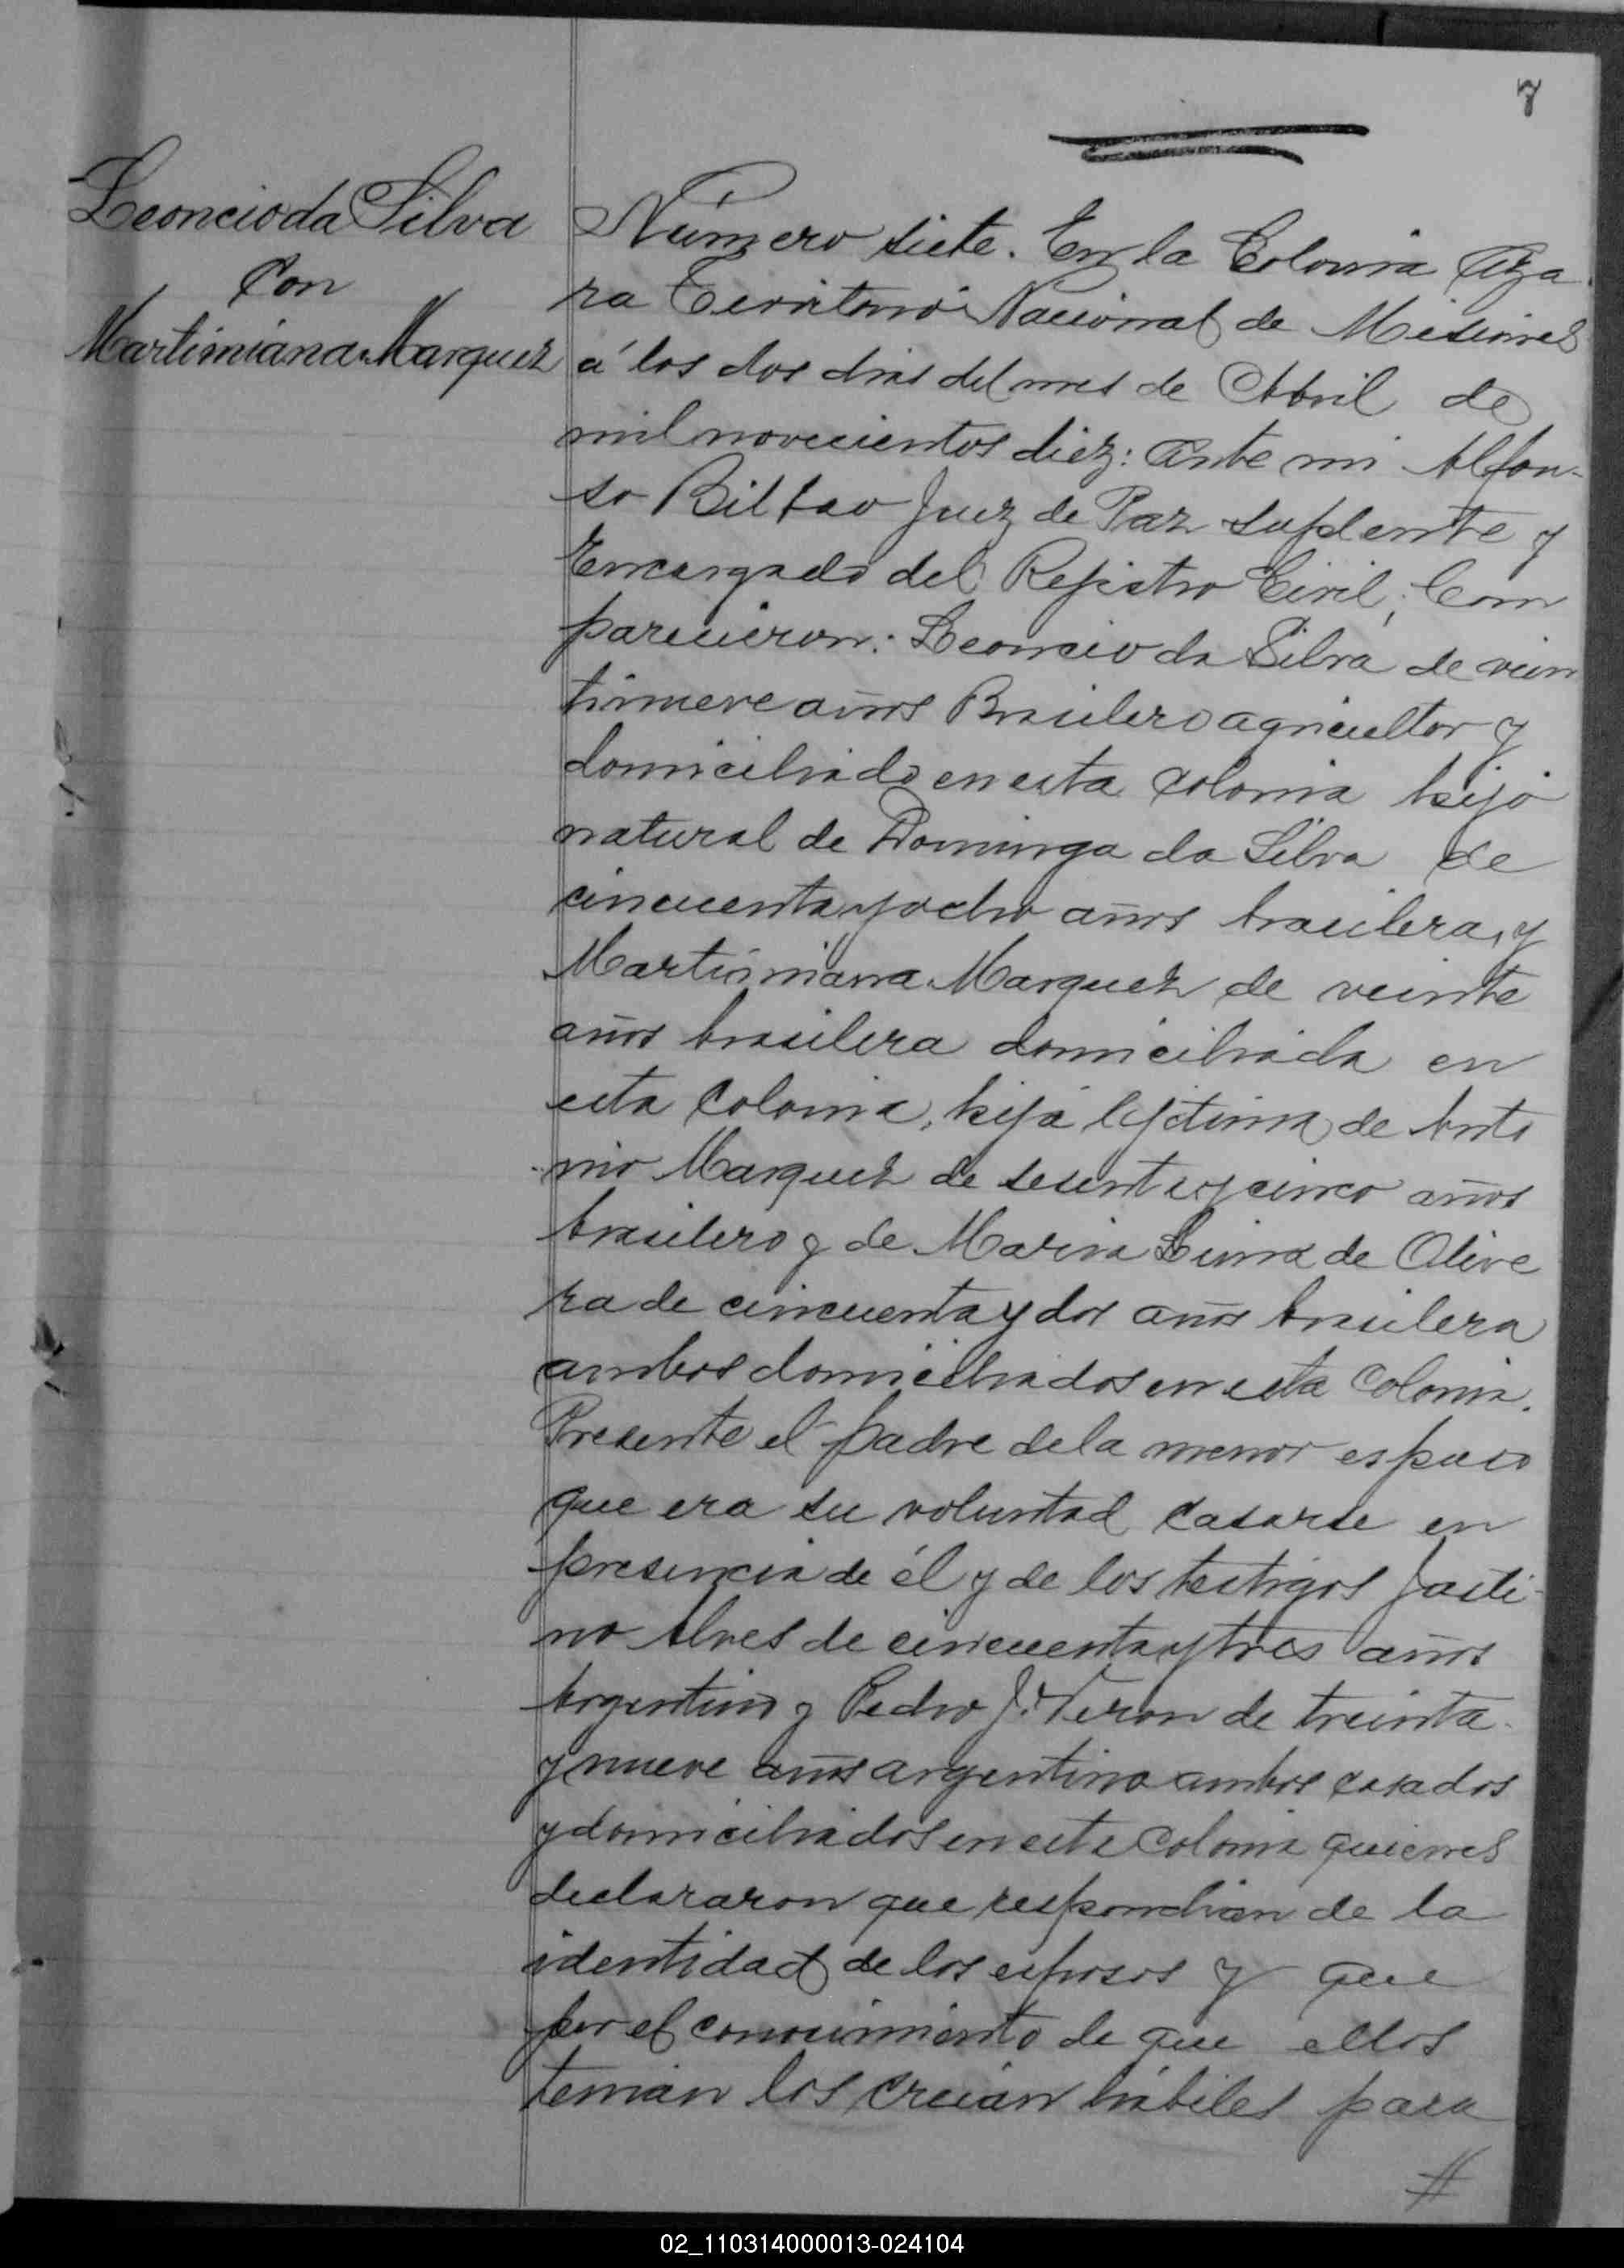 7
Leoncio da Silva
Con
Martimiana Marquez
Número siete. En la Colonia Aza
ra Territorio Nacional de Misiones
á los dos dias del mes de Abril de
mil novecientos diez: Ante mi Alfon-
so Bilbao Juez de Paz suplente y
Encargado del Rejistro Civil; Com
parecieron: Leoncio da Silva de vein
tinueve años Brasilero agricultor y
domiciliado en esta Colonia hijo
natural de Dominga da Silva de
cincuenta y ocho años brasilera, y
Martimiana Marquez de veinte
años brasilera domiciliada en
esta Colonia, hija lejitima de Anto
nio Marquez de sesenta y cinco años
brasilero y de Maria Lima de Olive
ra de cincuenta y dos años brasilera
ambos domiciliados en esta Colonia.
Presente el padre de la menor espuso
que era su voluntad casarse en
presencia de él y de los testigos Justi-
no Alves de cincuenta y tres años
Argentino y Pedro J. Veron de treinta
y nueve años argentino ambos casados
y domiciliados en esta Colonia quienes
declararon que respondian de la
identidad de los esposos y que
por el conocimiento de que ellos
tenian los creian hábiles para
#
02_110314000013-024104